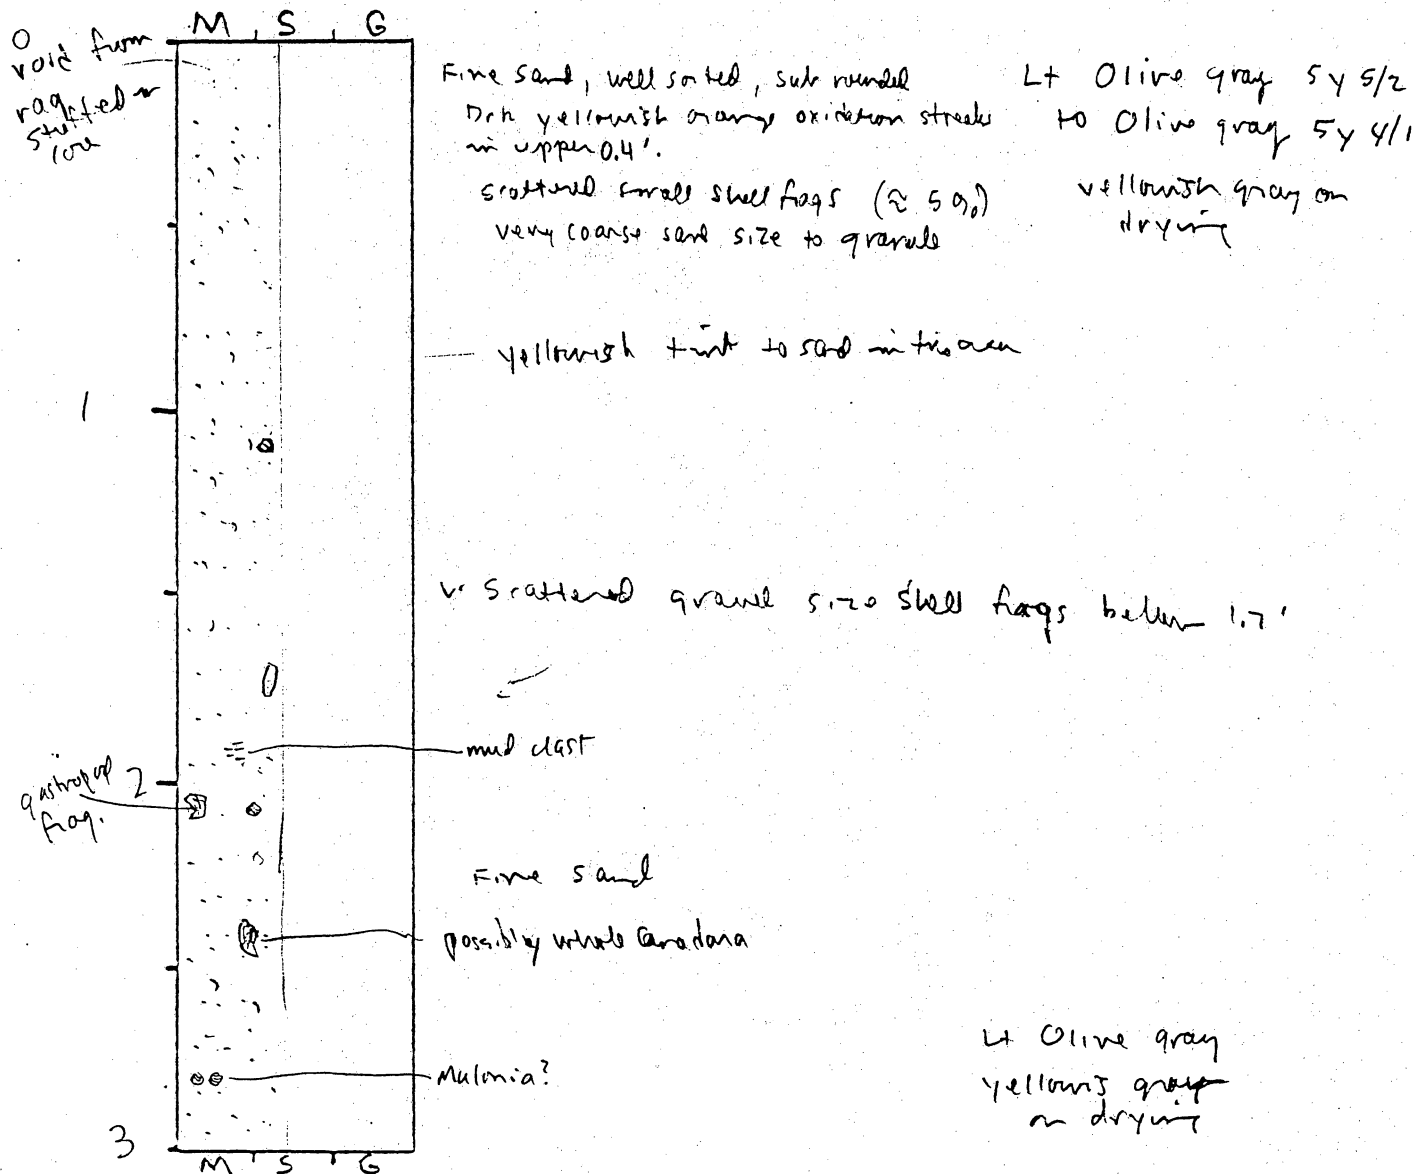 M S G
0
void from
rag stuffed in
core
Fine sand, well sorted, sub rounded
Drk yellowish orange oxidation streaks
in upper 0.4'.
scattered small shell frags (≈ 5%)
very coarse sand size to granule
Lt Olive gray 5y 5/2
to Olive gray 5y 4/1
yellowish gray on
drying
yellowish tint to sand in this area
1
v. Scattered gravel size shell frags below 1.7'
mud clast
gastropod
frag.
2
Fine sand
possibly whole
Lt Olive gray
yellowis gray
on drying
Mulonia?
3
M S G